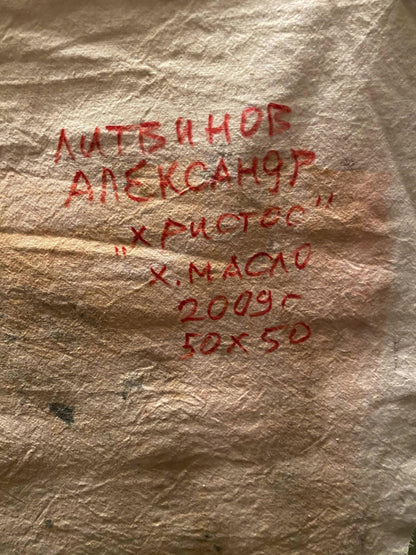 ЛИТВИНОВ
АЛЕКСАНДР
„ХРИСТОС"
Х. МАСЛО
2009г
50х50